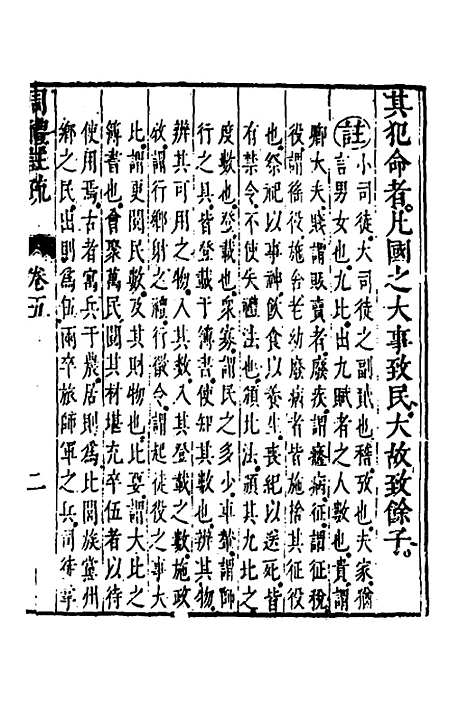 其犯命者。凡國之大事致民。大故致餘子。
註 小司徒。大司徒之副貳也。稽。攷也。夫家。猶
言男女也。九比。出九賦者之人數也。貴謂
卿大夫。賤謂販賣者。廢疾。謂癃病。征。謂征稅。
役謂徭役。施舍。老幼廢病者皆施捨其征役
也。祭祀以事神。飲食以養生。喪紀以送死。皆
有禁令。不使失禮法也。頒比法。頒其九比之
度數也。登。載也。衆寡。謂民之多少。車輦。謂師
行之具。皆登載于簿書。使知其數也。辨其物。
辨其可用之物。入其數。入其登載之數。施政
敎。謂行鄉射之禮。行徵令。謂起徒役之事。大
比。謂更閱民數。及其財物也。比要。謂大比之
簿書也。會聚萬民。閱其材堪充卒伍者以待
使用焉。古者寓兵于農。居則爲比閭族黨州
鄉之民。出則爲伍兩卒旅師軍之兵。司徒掌
周禮註疏
卷五
二